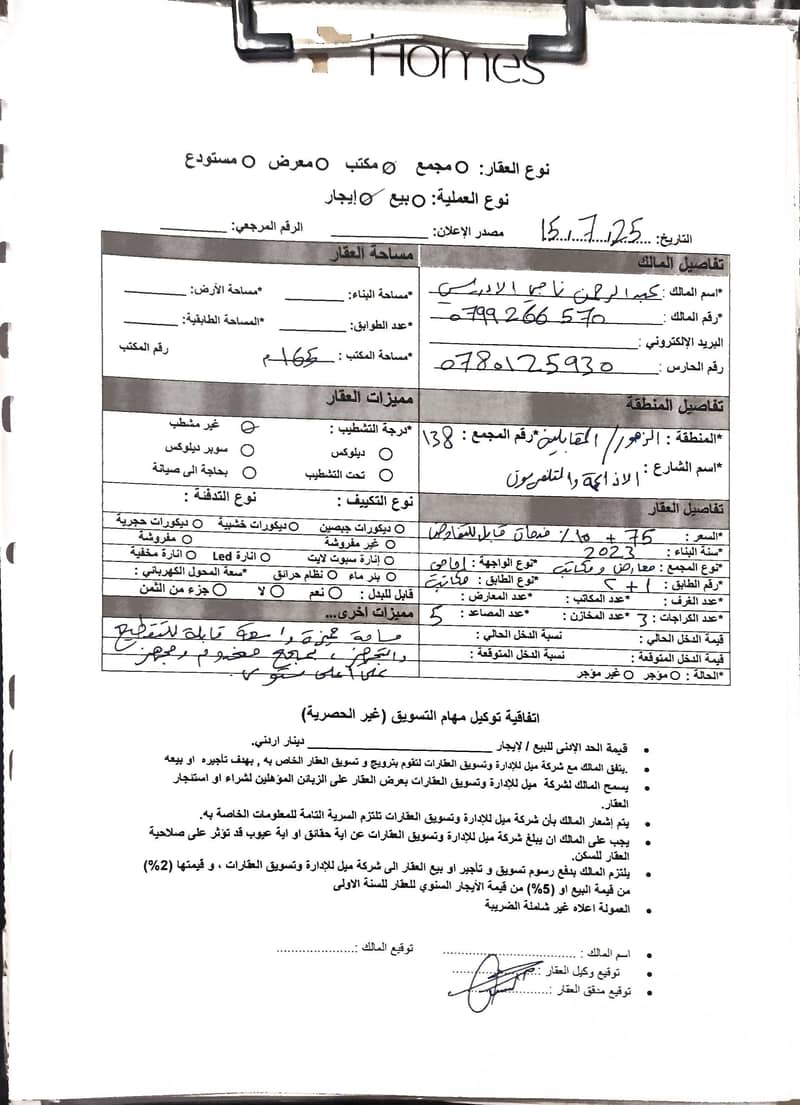 Homes
نوع العقار: مجمع مكتب معرض مستودع
نوع العملية: بيع إيجار
التاريخ: 15/7/25 مصدر الإعلان: الرقم المرجعي:
تفاصيل المالك
*اسم المالك : عبدالرحمن ناجي الادريسي
*رقم المالك : 0799266570
البريد الإلكتروني :
رقم الحارس : 0780125930
مساحة العقار
*مساحة البناء: *مساحة الأرض:
*عدد الطوابق: *المساحة الطابقية:
*مساحة المكتب : 165م رقم المكتب
تفاصيل المنطقة
*المنطقة : الزهور / المقابلين *رقم المجمع : 138
*اسم الشارع : الاذاعة والتلفزيون
مميزات العقار
*درجة التشطيب : غير مشطب
ديلوكس سوبر ديلوكس
تحت التشطيب بحاجة الى صيانة
تفاصيل العقار
*السعر : 75 + 10% خدمات قابل للتفاوض
*سنة البناء : 2023
*نوع المجمع : معارض ومكاتب *نوع الواجهة: امامي
*رقم الطابق : 1 + 2 *نوع الطابق : مكاتب
*عدد الغرف : *عدد المكاتب : *عدد المعارض :
*عدد الكراجات : 3 *عدد المخازن : *عدد المصاعد : 5
قيمة الدخل الحالي : نسبة الدخل الحالي :
قيمة الدخل المتوقعة : نسبة الدخل المتوقعة :
*الحالة : مؤجر غير مؤجر
نوع التكييف : نوع التدفئة :
ديكورات جبصين ديكورات خشبية ديكورات حجرية
غير مفروشة مفروشة
إنارة سبوت لايت انارة Led انارة مخفية
بئر ماء نظام حرائق *سعة المحول الكهربائي :
قابل للبدل : نعم لا جزء من الثمن
مميزات اخرى...
مساحة مميزة واسعة قابلة للتقطيع
والتجهيز ، بمجمع مخدوم ومجهز
على أعلى مستوى
اتفاقية توكيل مهام التسويق (غير الحصرية)
• قيمة الحد الادنى للبيع / لإيجار دينار اردني.
• يتفق المالك مع شركة ميل للإدارة وتسويق العقارات لتقوم بترويج و تسويق العقار الخاص به , بهدف تأجيره او بيعه
• يسمح المالك لشركة ميل للإدارة وتسويق العقارات بعرض العقار على الزبائن المؤهلين لشراء او استئجار
العقار.
• يتم إشعار المالك بأن شركة ميل للإدارة وتسويق العقارات تلتزم السرية التامة للمعلومات الخاصة به.
• يجب على المالك ان يبلغ شركة ميل للإدارة وتسويق العقارات عن اية حقائق او اية عيوب قد تؤثر على صلاحية
العقار للسكن.
• يلتزم المالك بدفع رسوم تسويق و تأجير او بيع العقار الى شركة ميل للإدارة وتسويق العقارات ، و قيمتها (2%)
من قيمة البيع او (5%) من قيمة الأيجار السنوي للعقار للسنة الاولى
• العمولة اعلاه غير شاملة الضريبة
• اسم المالك : توقيع المالك :
• توقيع وكيل العقار :
• توقيع مدقق العقار :